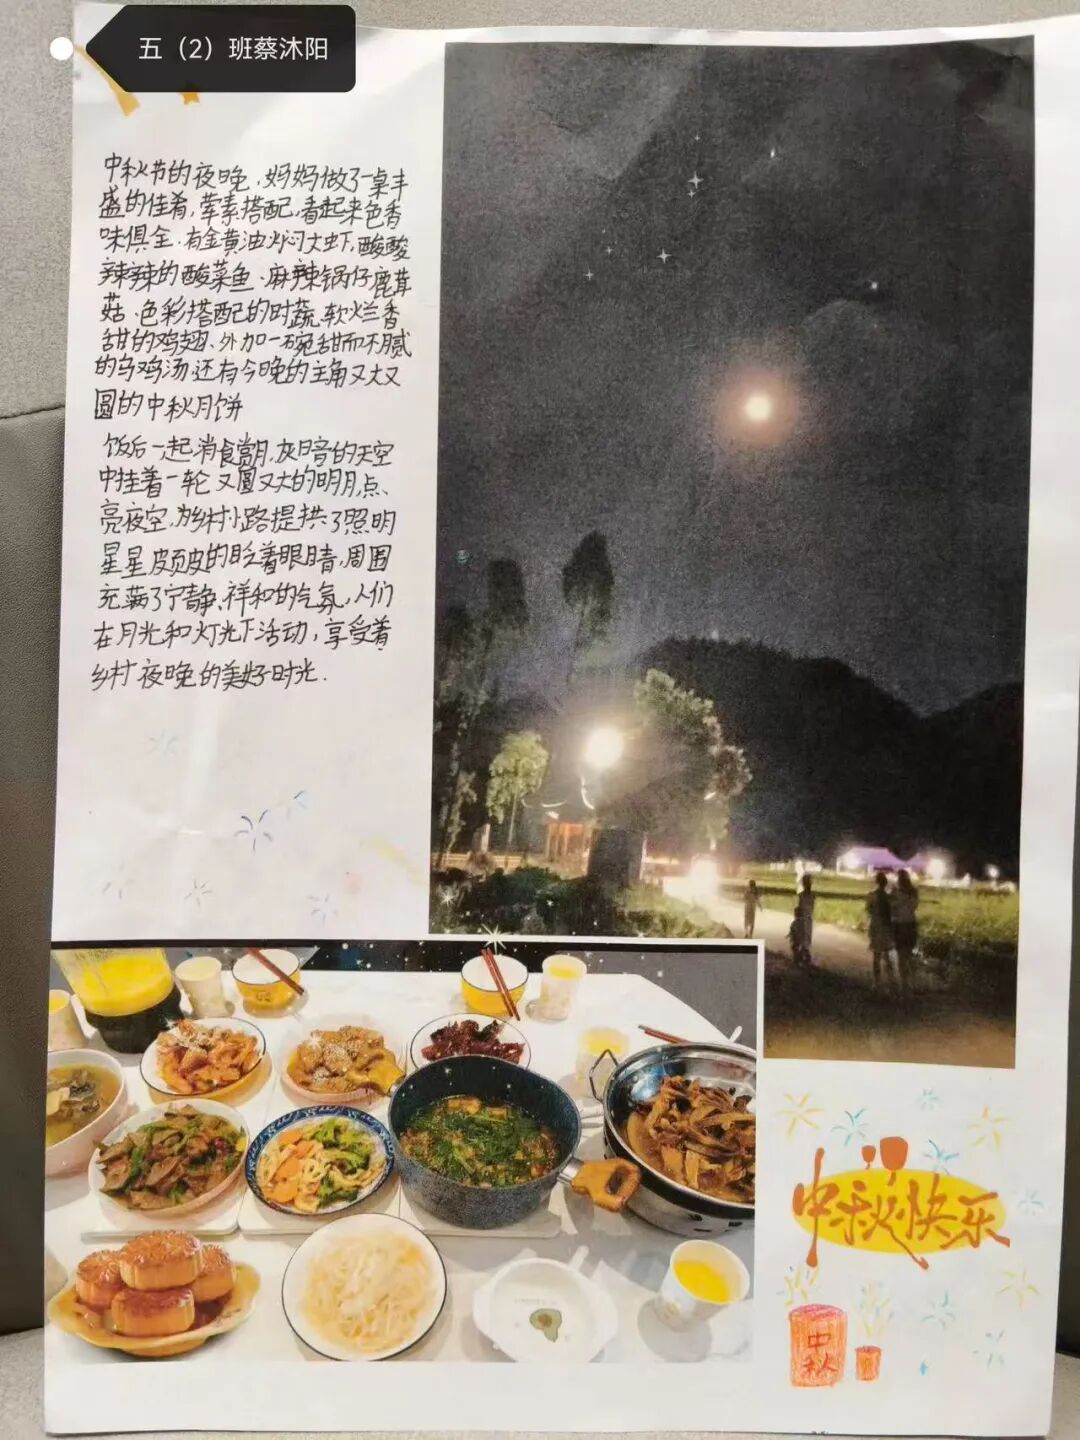 五（2）班蔡沐阳
中秋节的夜晚，妈妈做了一桌丰
盛的佳肴，荤素搭配，看起来色香
味俱全，有金黄油火闷大虾，酸酸
辣辣的酸菜鱼、麻辣锅仔鹿茸
菇、色彩搭配的时蔬，软烂香
甜的鸡翅、外加一碗甜而不腻
的乌鸡汤，还有今晚的主角又大又
圆的中秋月饼
饭后一起消食赏月，灰暗的天空
中挂着一轮又圆又大的明月，点
亮夜空，为乡村小路提拱了照明
星星皮页皮的眨着眼睛，周围
充满了宁静、祥和的气氛，人们
在月光和灯光下活动，享受着
乡村夜晚的美好时光．
中秋快乐
中
秋